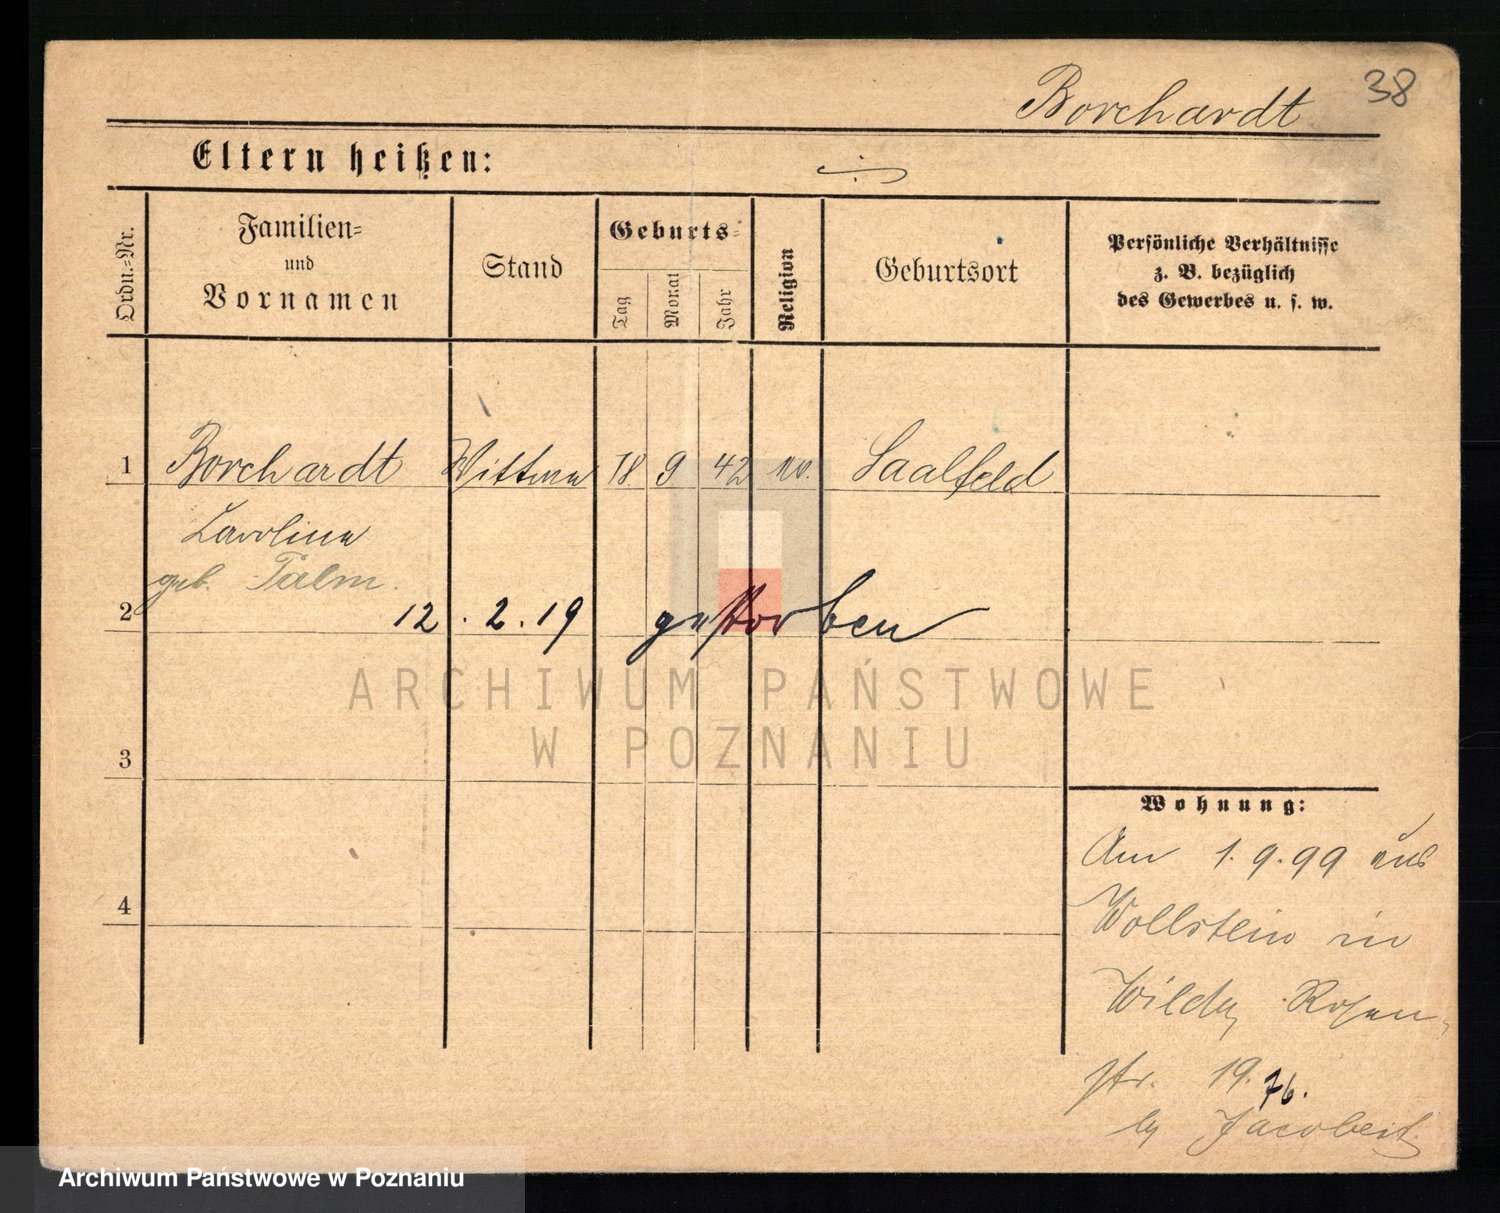 38
Borchardt
Eltern heißen:
Ordn.-Nr.
Familien-
und
Vornamen
Stand
Geburts-
Tag
Monat
Jahr
Religion
Geburtsort
Persönliche Verhältnisse
z. B. bezüglich
des Gewerbes u. s. w.
1 Borchardt Wittwe 18 9 42 Saalfeld
Caroline
geb. Talm.
2 12. 2. 19 gestorben
ARCHIWUM PAŃSTWOWE
W POZNANIU
3
4
Wohnung:
Am 1. 9. 99 aus
Wollstein in
Wilda, Rosen-
str. 19. 76.
Archiwum Państwowe w Poznaniu